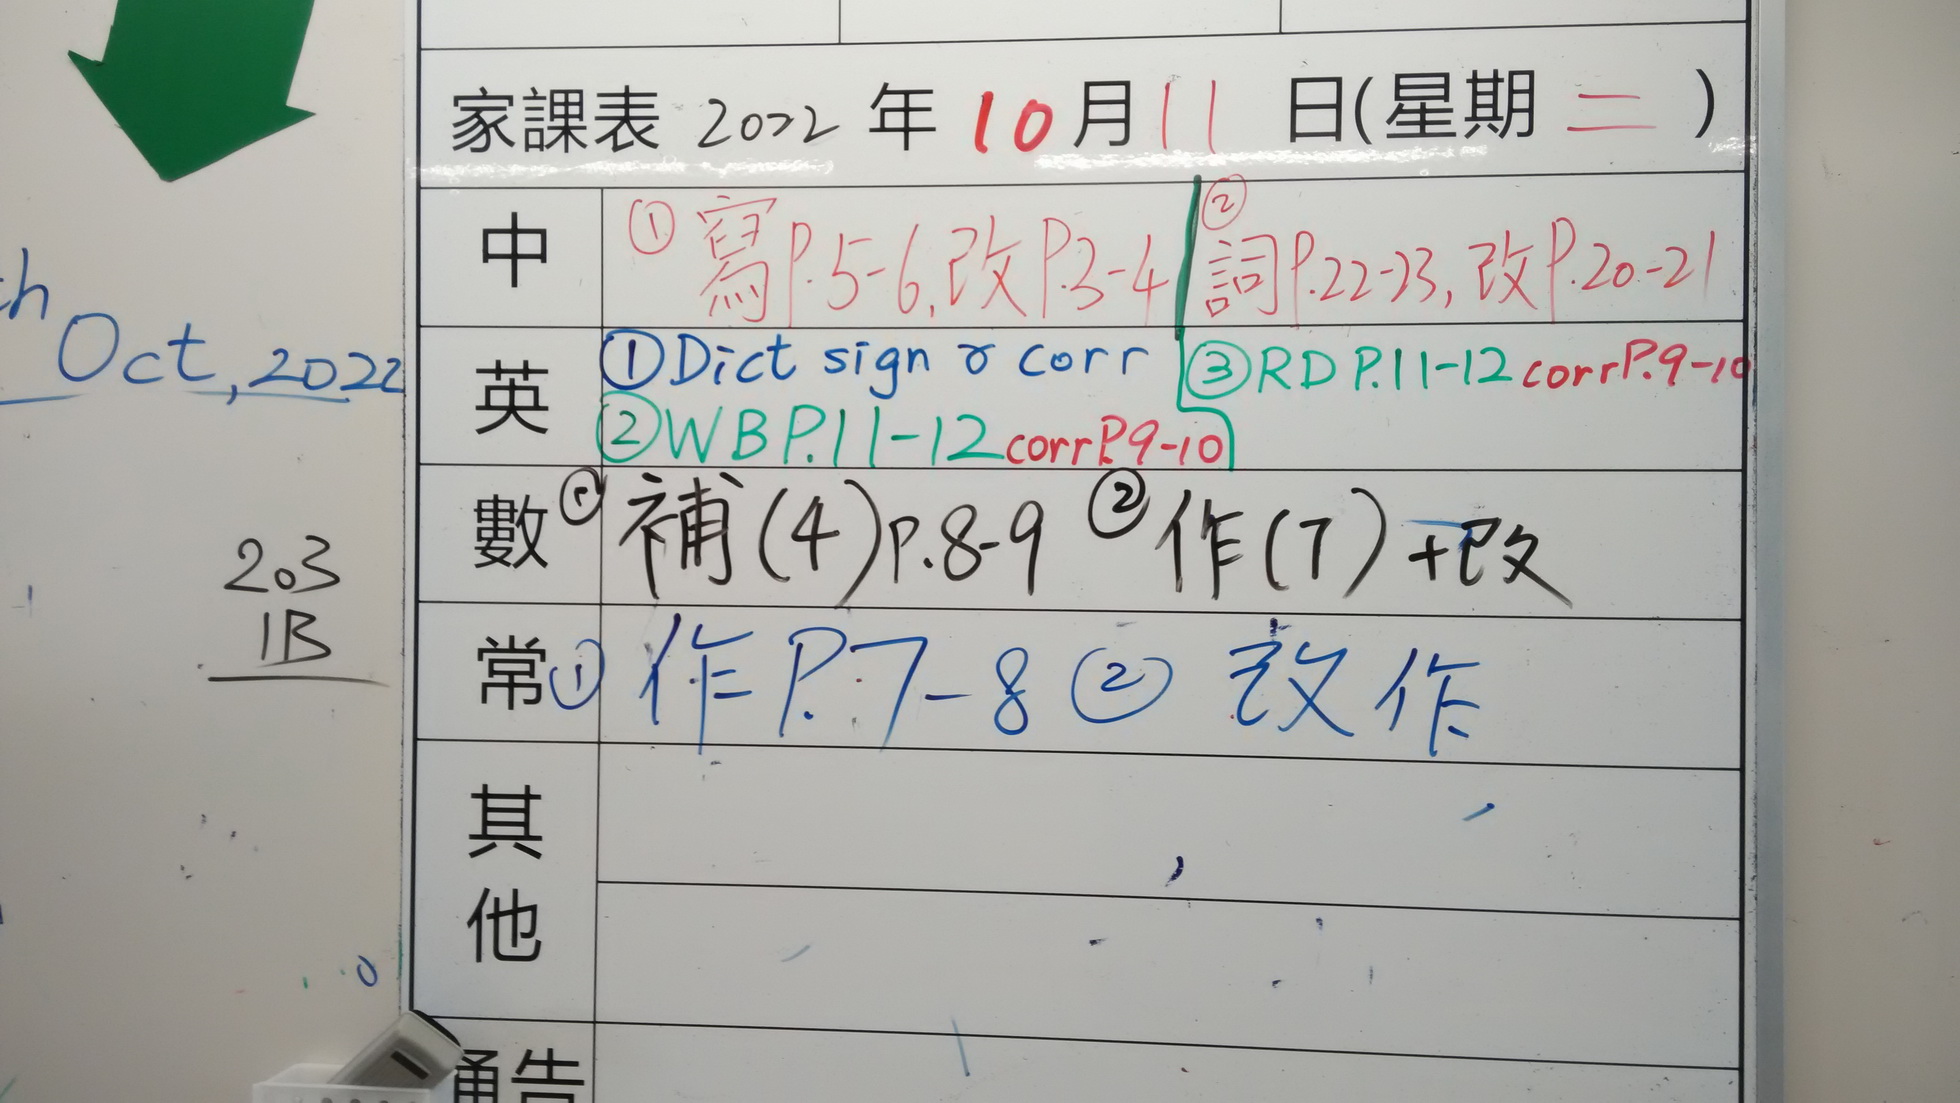 家課表 2022 年 10 月 11 日(星期 二 )
中 ① 寫P.5-6,改P.3-4 ② 詞P.22-23,改P.20-21
英 ① Dict sign & corr ③ RD P.11-12 corrP.9-10
② WB P.11-12 corrP.9-10
數 ① 補(4)P.8-9 ② 作(7)+改
常 ① 作P.7-8 ② 改作
其他
通告
th Oct, 2022
203
1B